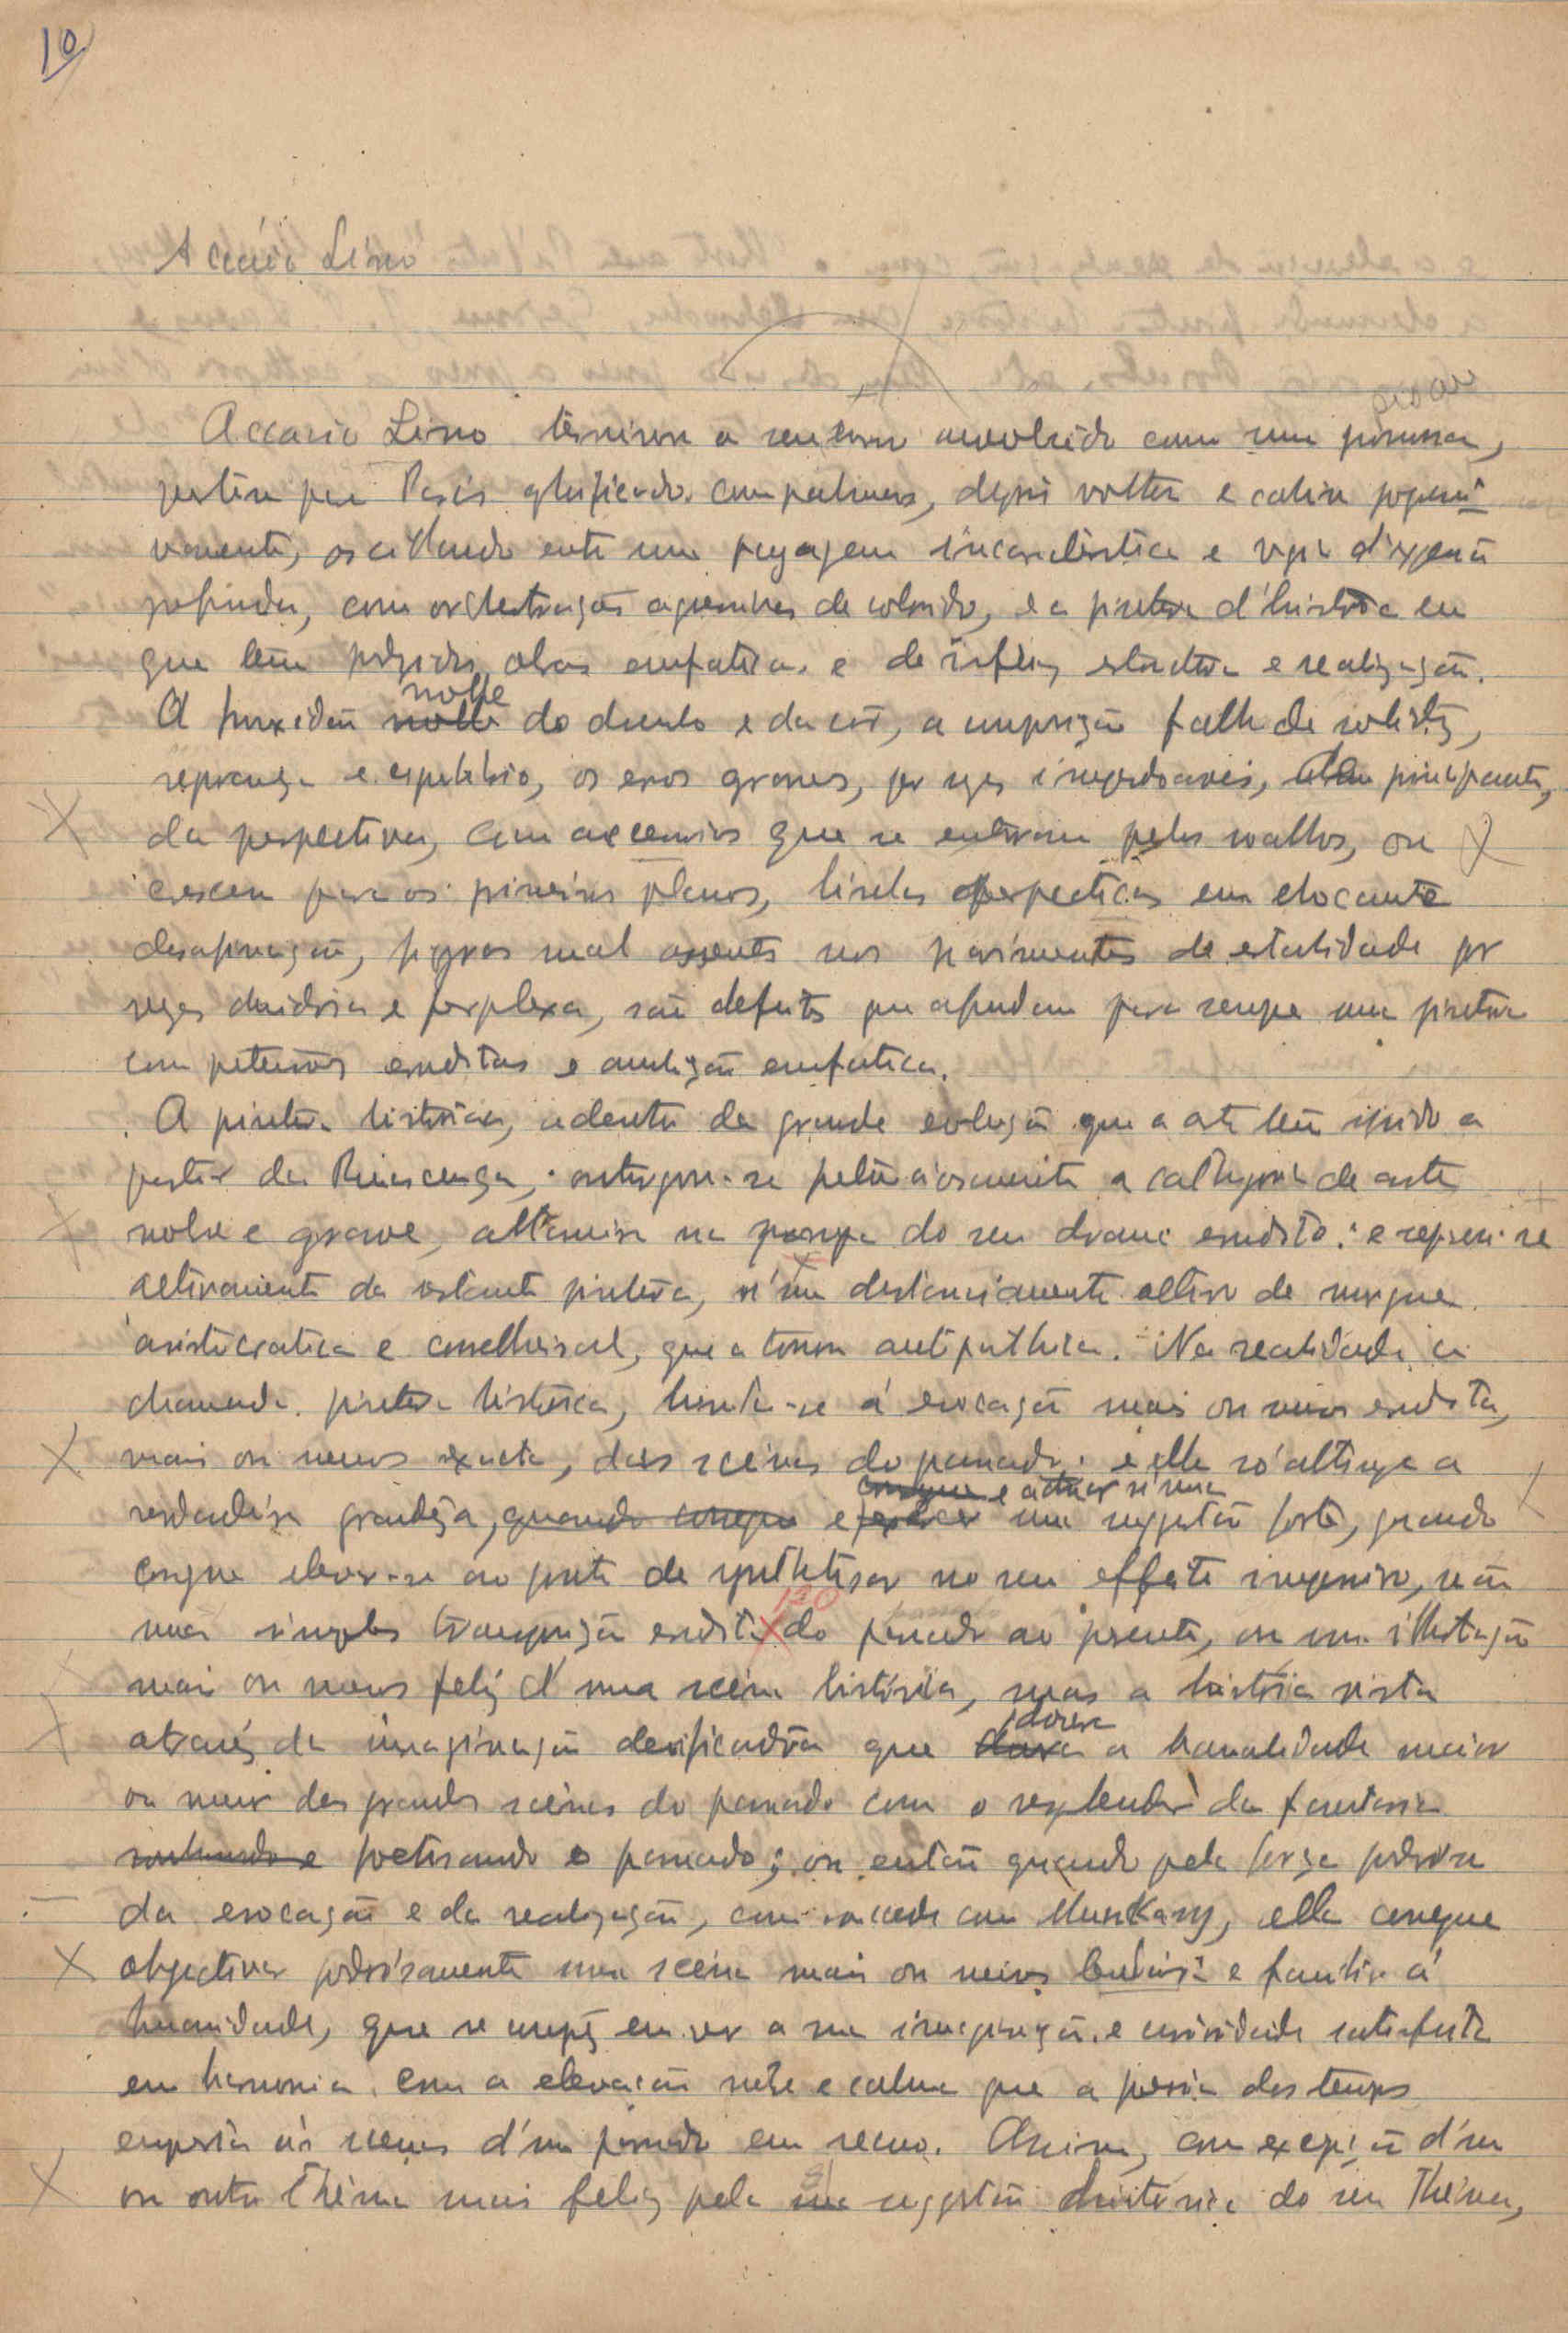 10
Accácio Lino
Accacio Lino terminou o seu curso envolvido com uma
partiu para Paris glorificado com palmas, depois voltou e
vamente, oscillando entre uma paysagem incaracteristica e
profunda, com orchestrações de colorido, e a pintura d'historia em
que tem produzido obras emfaticas e de infeliz estructura e realização.
A frouxidão molle molle do desenho e da côr, a composição falha de solidez,
segurança e equilibrio, os erros graves, por vezes imperdoaveis,
da perspectiva, com accessorios que se enterram pelos soalhos, ou
crescem para os primeiros planos, linhas perspecticas em chocante
desafinação, figuras mal assentes nos pavimentos de estabilidade por
vezes duvidosa e perplexa, são defeitos que afundam para sempre uma pintura
com pretensões eruditas e ambição emfatica.
A pintura historica, adentro da grande evolução que a arte tem seguido a
partir da Renascença, outorgou-se pretenciosamente a cathegoria de arte
nobre e grave, altaneira na pompa do seu drama erudito: e separou-se
altivamente da restante pintura, n'um distanciamento altivo de
aristocratica e conselheiral, que a tornou antipathica. Na realidade a
chamada pintura historica, limita-se á evocação mais ou menos erudita,
mais ou menos exacta, das scenas do passado: e ella só attinge a
consegue e actuar n'uma
verdadeira grandeza, quando consegue e exercer uma suggestão forte, quando
consegue elevar-se ao ponto de synthetisar no seu effeito impressivo, não
uma simples transposição erudita do passado ao presente, ou uma illustração
mais ou menos feliz d'uma scena historica, mas a historia vista
através da imaginação deificadora que doura a banalidade maior
ou menor das grandes scenas do passado com o resplendor da fantasia
sonhando e poetisando o passado; ou então quando pela força poderosa
da evocação e da realização, como succede com Munkacsy, ella consegue
objectivar poderosamente uma scena mais ou menos lendaria e familiar á
humanidade, que se compraz em ver a sua imaginação e curiosidade satisfeita
em harmonia com a elevação nobre e calma que a poesia dos tempos
empresta ás scenas d'um passado em recuo. Assim, com excepção d'um
ou outro thema mais feliz pela sua suggestão historica do seu thema,